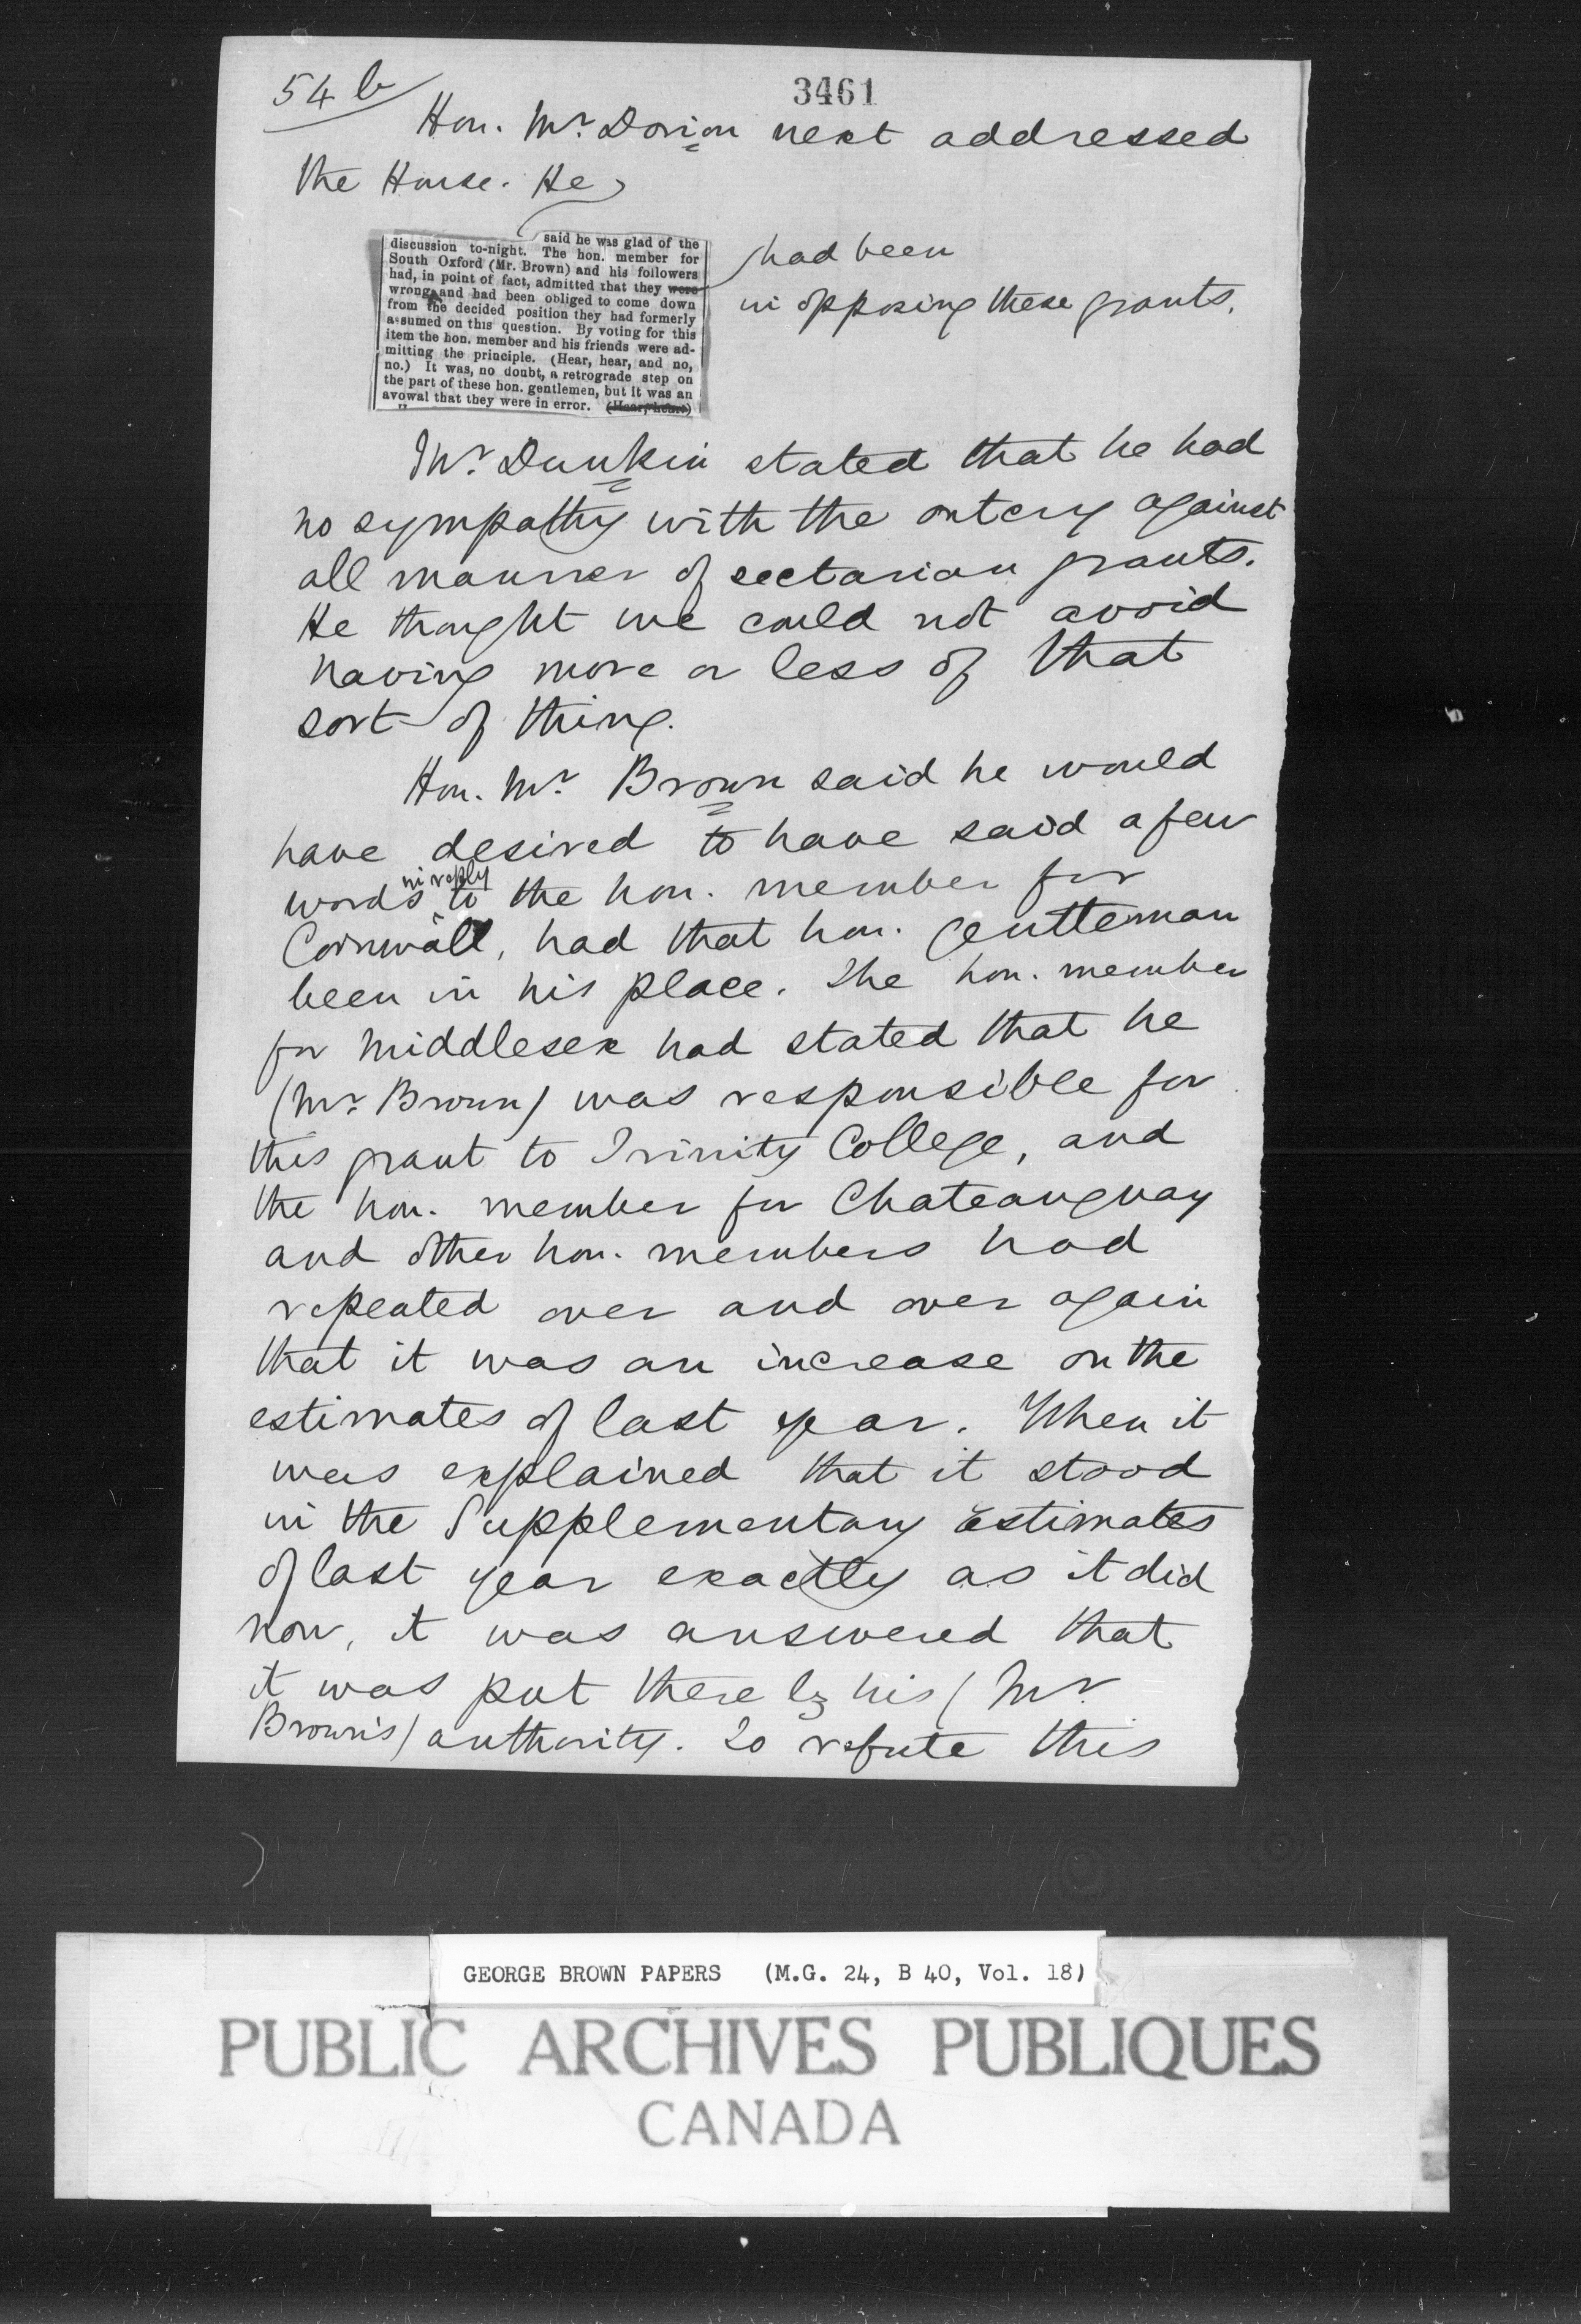 54 b
3461
Hon. Mr Dorion next addressed
the House. He
said he was glad of the
discussion to-night. The hon. member for
South Oxford (Mr. Brown) and his followers
had, in point of fact, admitted that they were
wrong and had been obliged to come down
from the decided position they had formerly
assumed on this question. By voting for this
item the hon. member and his friends were ad-
mitting the principle. (Hear, hear, and no,
no.) It was, no doubt, a retrograde step on
the part of these hon. gentlemen, but it was an
avowal that they were in error. (Hear, hear.)
had been
in opposing these grants.
Mr Dunkin stated that he had
no sympathy with the outcry against
all manner of sectarian grants.
He thought we could not avoid
having more or less of that
sort of thing.
Hon. Mr Brown said he would
have desired to have said a few
words in reply to the hon. member for
Cornwall, had that hon. gentleman
been in his place. The hon. member
for Middlesex had stated that he
(Mr Brown) was responsible for
this grant to Trinity College, and
the hon. member for Chateauguay
and other hon. members had
repeated over and over again
that it was an increase on the
estimates of last year. When it
was explained that it stood
in the Supplementary Estimates
of last year exactly as it did
now, it was answered that
it was put there by his (Mr
Brown's) authority. To refute this
GEORGE BROWN PAPERS (M.G. 24, B 40, Vol. 18)
PUBLIC ARCHIVES PUBLIQUES
CANADA